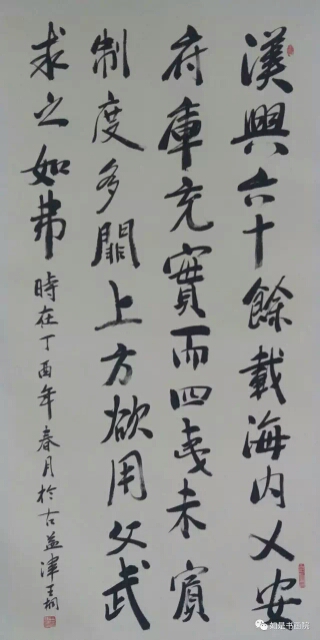 漢興六十餘載海内乂安
府庫充實而四夷未賓
制度多闕上方欲用文武
求之如弗
時在丁酉年春月於古益津王
如是书画院